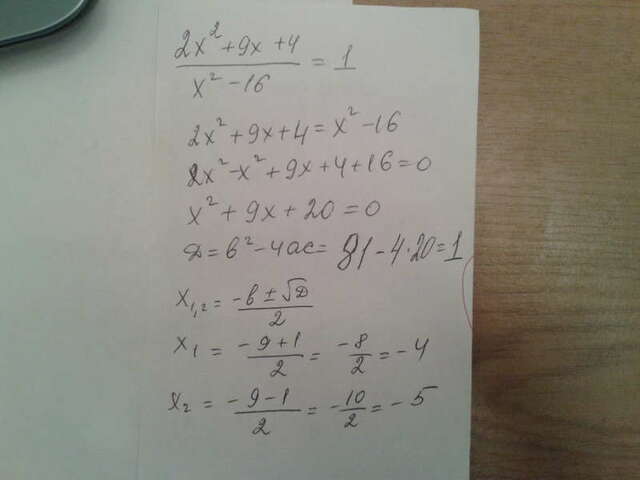 2x² + 9x + 4 / x² - 16 = 1
2x² + 9x + 4 = x² - 16
2x² - x² + 9x + 4 + 16 = 0
x² + 9x + 20 = 0
D = b² - 4ac = 81 - 4·20 = 1
x₁,₂ = -b ± √D / 2
x₁ = -9 + 1 / 2 = -8 / 2 = -4
x₂ = -9 - 1 / 2 = -10 / 2 = -5